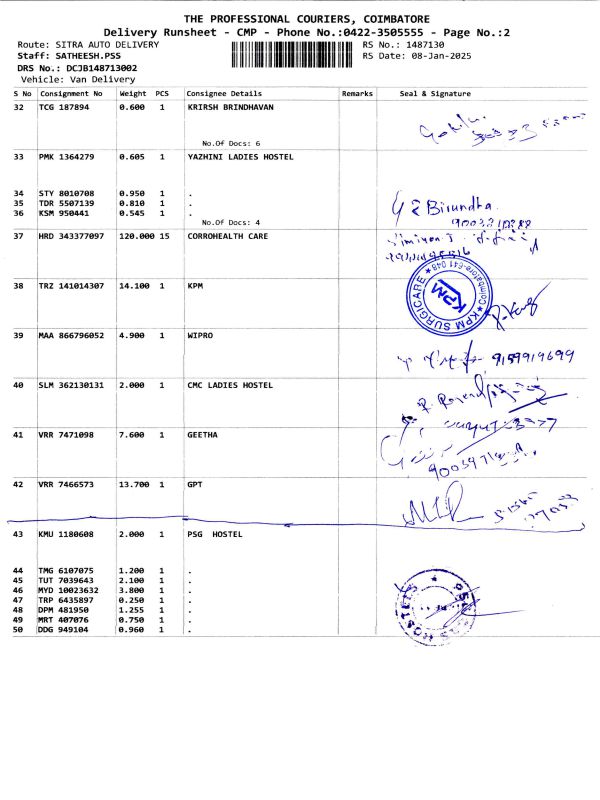 THE PROFESSIONAL COURIERS, COIMBATORE
Delivery Runsheet - CMP - Phone No.:0422-3505555 - Page No.:2
Route: SITRA AUTO DELIVERY RS No.: 1487130
Staff: SATHEESH.PSS RS Date: 08-Jan-2025
DRS No.: DCJB148713002
Vehicle: Van Delivery
S No Consignment No Weight PCS Consignee Details Remarks Seal & Signature
32 TCG 187894 0.600 1 KRIRSH BRINDHAVAN
No.Of Docs: 6
33 PMK 1364279 0.605 1 YAZHINI LADIES HOSTEL
34 STY 8010708 0.950 1 .
35 TDR 5507139 0.810 1 .
36 KSM 950441 0.545 1 .
Birundha
No.Of Docs: 4
37 HRD 343377097 120.000 15 CORROHEALTH CARE
38 TRZ 141014307 14.100 1 KPM
KPM SURGICARE * Coimbatore-641 048 *
KPM
39 MAA 866796052 4.900 1 WIPRO
9159919699
40 SLM 362130131 2.000 1 CMC LADIES HOSTEL
41 VRR 7471098 7.600 1 GEETHA
42 VRR 7466573 13.700 1 GPT
43 KMU 1180608 2.000 1 PSG HOSTEL
44 TMG 6107075 1.200 1 .
45 TUT 7039643 2.100 1 .
46 MYD 10023632 3.800 1 .
47 TRP 6435897 0.250 1 .
48 DPM 481950 1.255 1 .
49 MRT 407076 0.750 1 .
50 DDG 949104 0.960 1 .